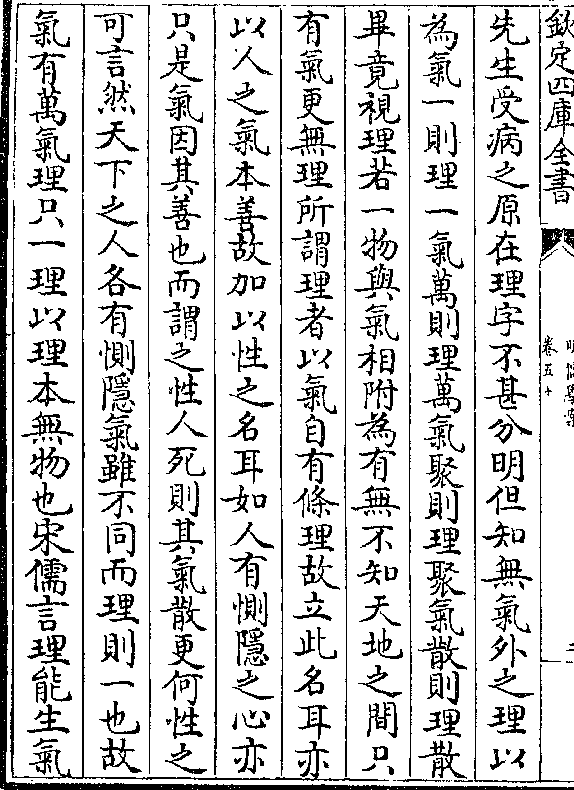 欽定四庫全書
明儒學案
卷五十
先生受病之原在理字不甚分明但知無氣外之理以
為氣一則理一氣萬則理萬氣聚則理聚氣散則理散
畢竟視理若一物與氣相附為有無不知天地之間只
有氣更無理所謂理者以氣自有條理故立此名耳亦
以人之氣本善故加以性之名耳如人有惻隱之心亦
只是氣因其善也而謂之性人死則其氣散更何性之
可言然天下之人各有惻隱氣雖不同而理則一也故
氣有萬氣理只一理以理本無物也宋儒言理能生氣